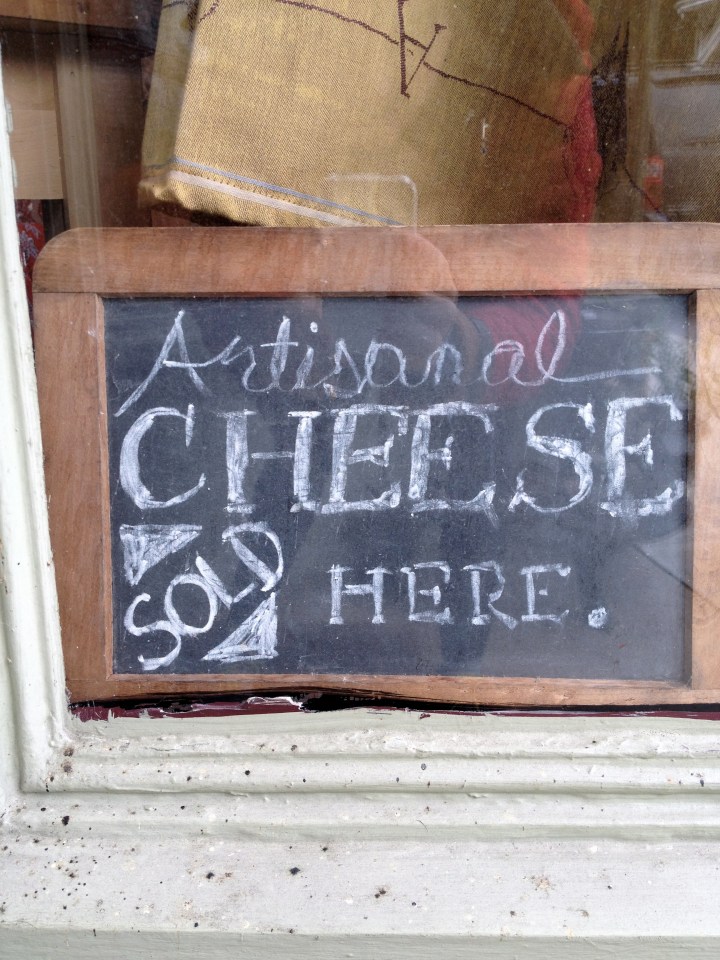 Artisanal
CHEESE
SOLD HERE.